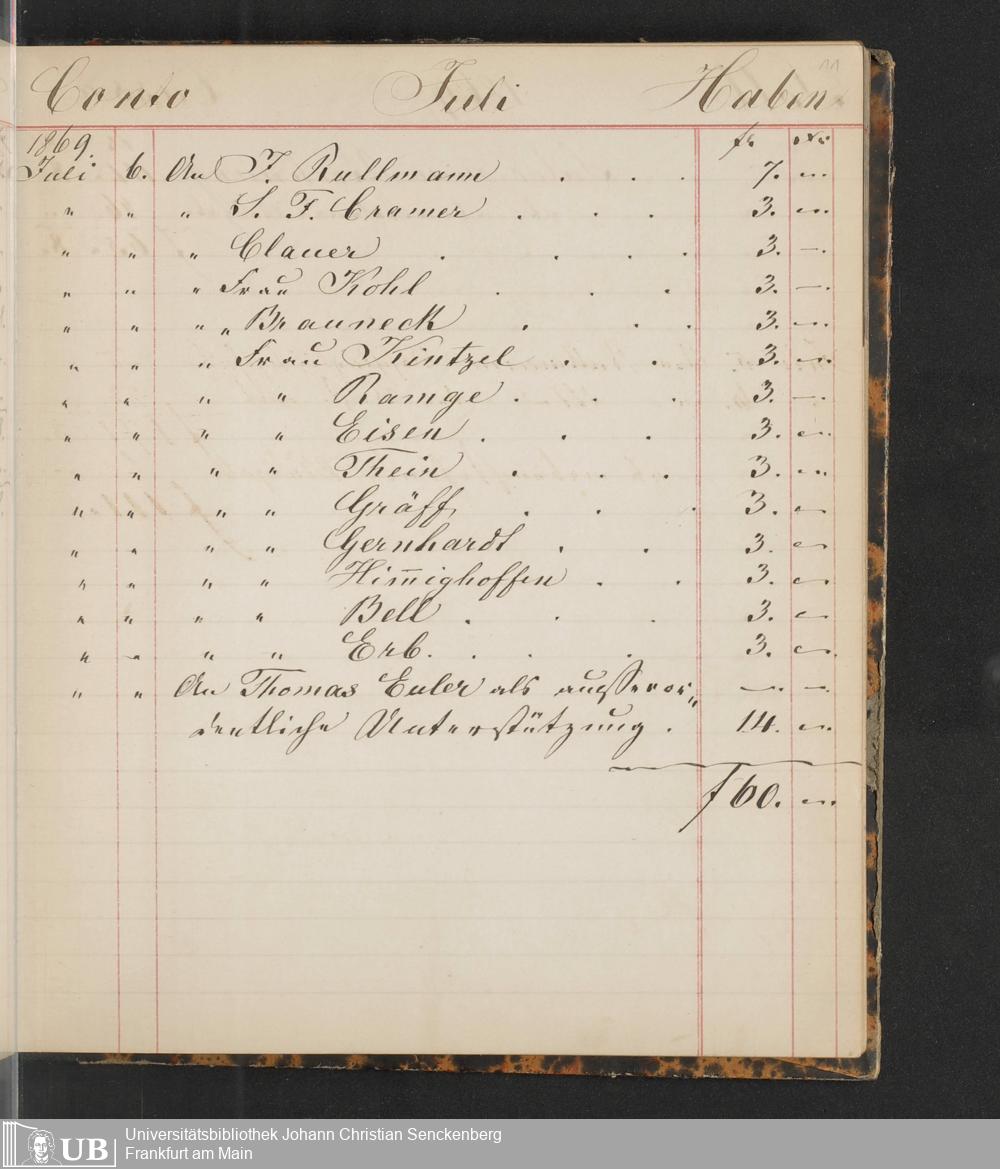 Conto Juli Haben 11
1869. fr xr
Juli 6. An J. Rullmann . . . 7. —
" " " S. F. Cramer . . . 3. —
" " " Clauer . . . . 3. —
" " " Frau Kohl . . . 3. —
" " " " Brauneck . . . 3. —
" " " Frau Kintzel . . 3. —
" " " " Ramge . . . 3. —
" " " " Eisen . . . 3. —
" " " " Thein . . . 3. —
" " " " Gräff . . . 3. —
" " " " Gernhardt . . 3. —
" " " " Him̅ighoffen . . 3. —
" " " " Bell . . . 3. —
" " " " Erb. . . . 3. —
" " An Thomas Euler als ausseror„ —. —
dentliche Unterstützung . 14. —
f 60. —
UB Universitätsbibliothek Johann Christian Senckenberg
Frankfurt am Main